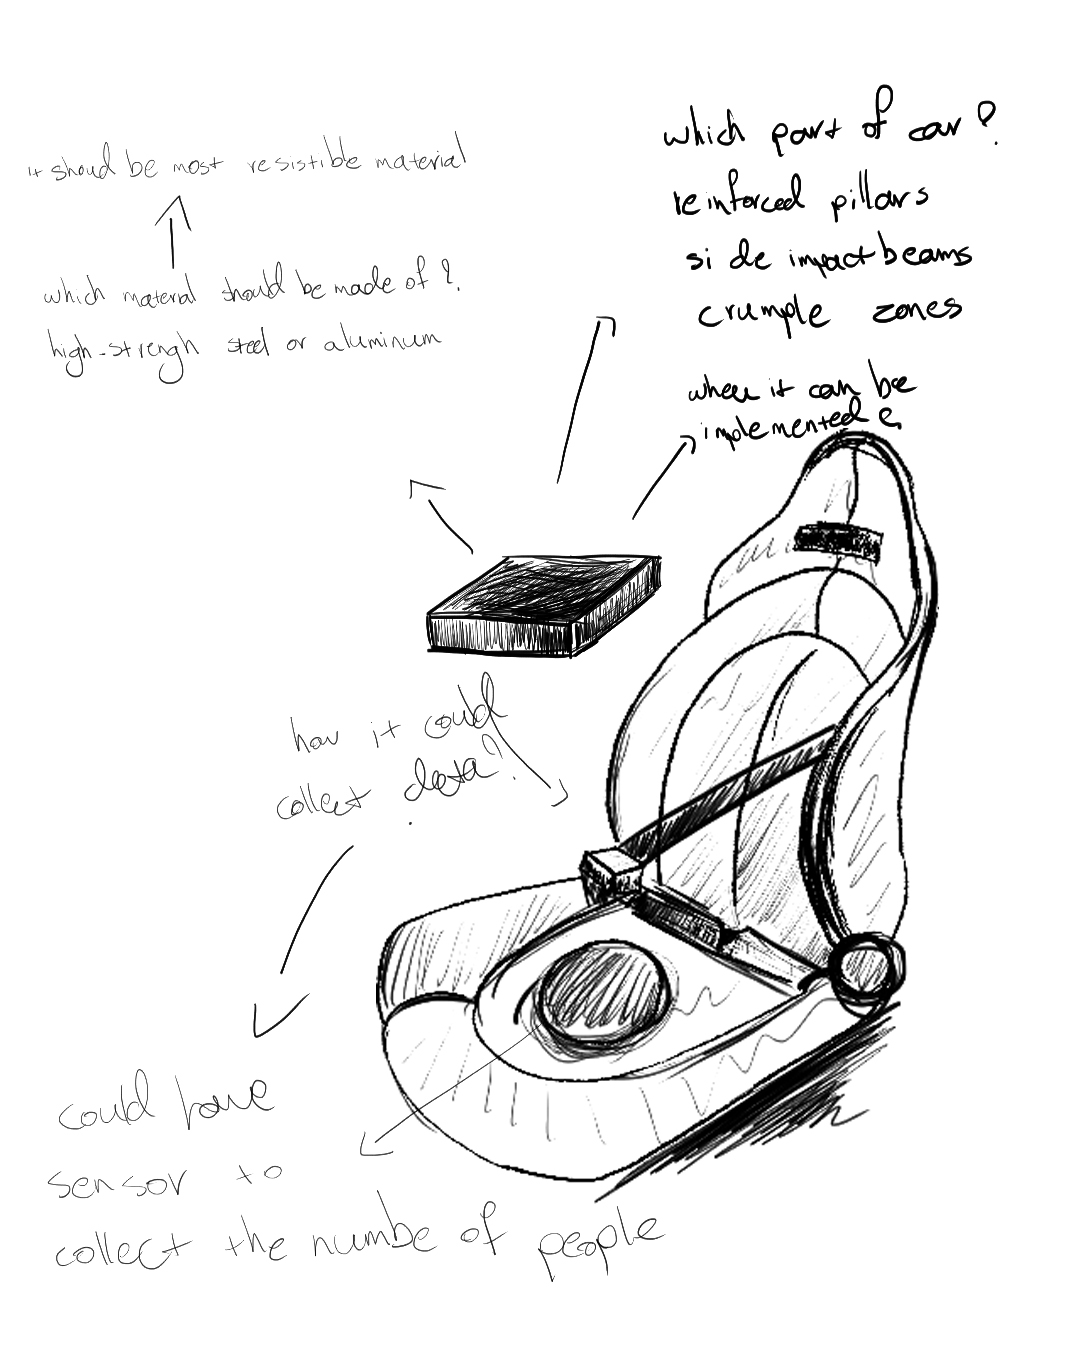 it should be most resistible material
which material should be made of ?
high-strengh steel or aluminum
which part of car ?
reinforced pillars
side impact beams
crumple zones
where it can be
implemented
how it could
collect data?
could have
sensor to
collect the numbe of people